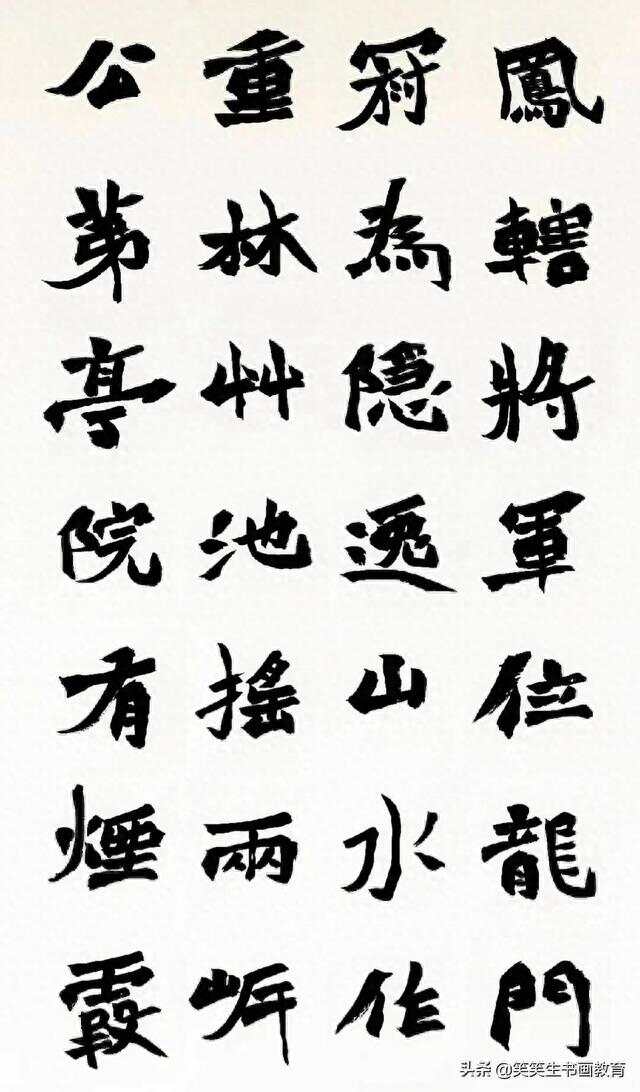 鳳轄將軍位龍門
冠為隱逸山水作
重林艸池搖兩岸
公苐亭院有煙霞
头条 @笑笑生书画教育